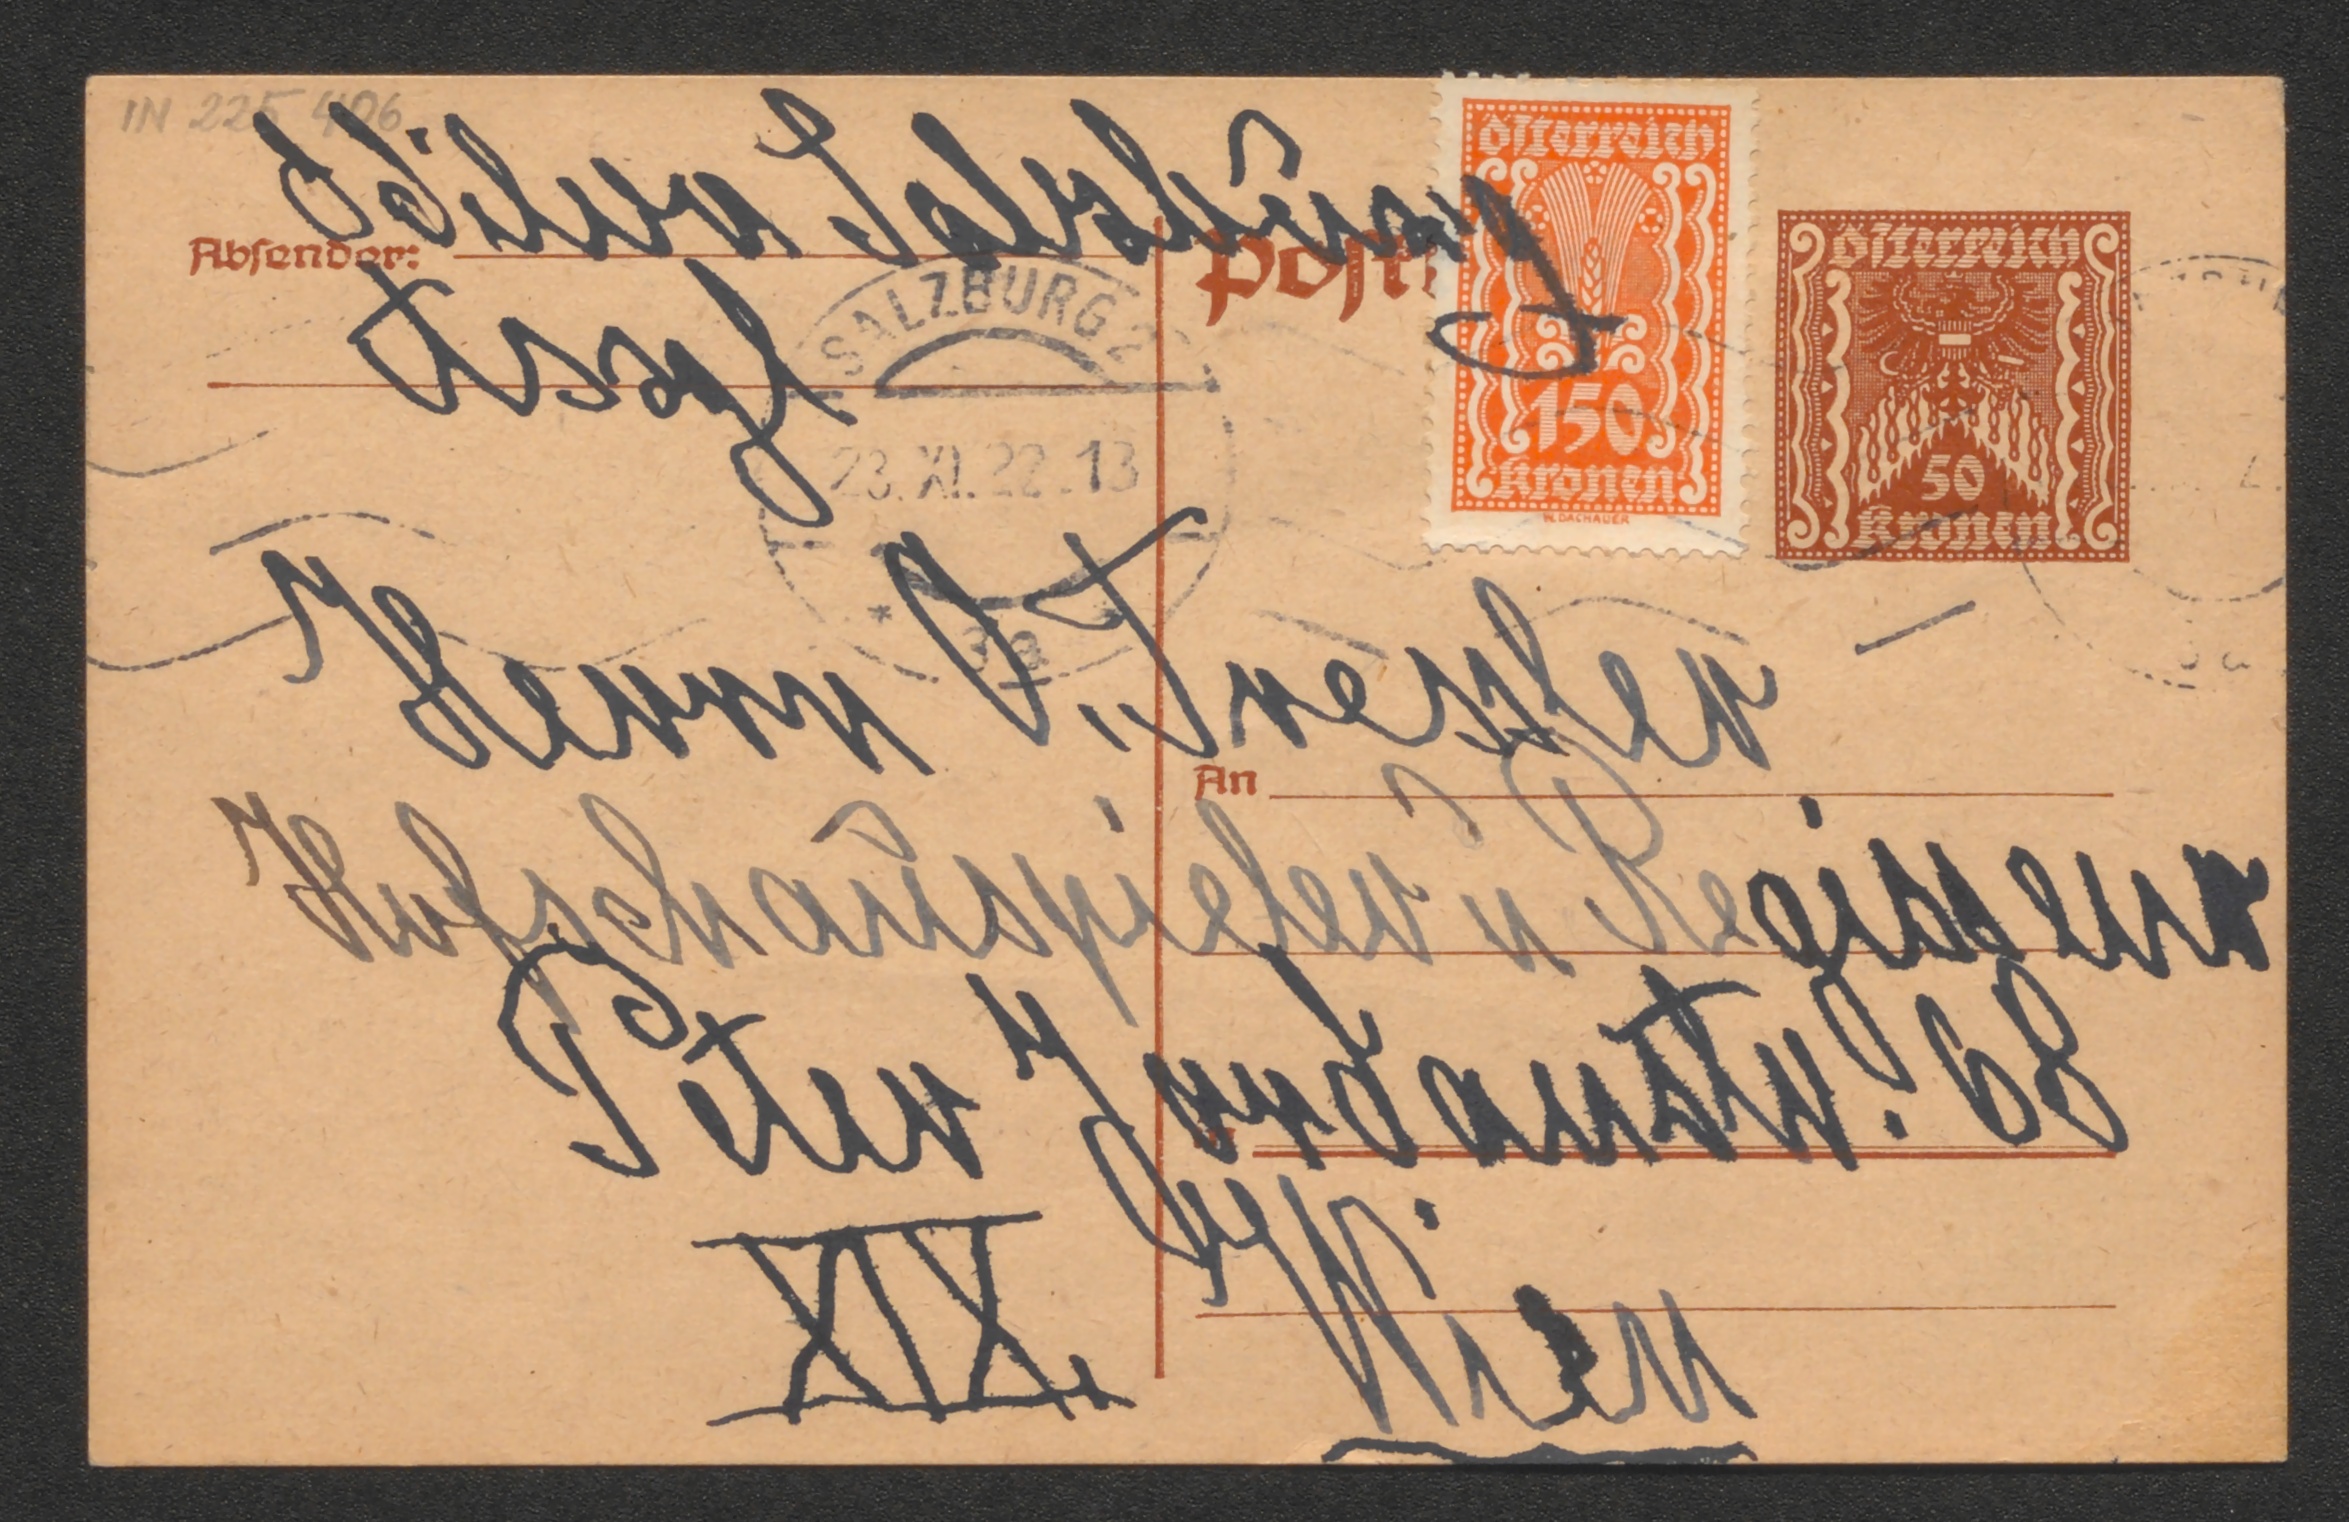 IN 225 406
Salzburg
Absender:
Postk
Österreich
150
Kronen
W. DACHAUER
Österreich
50
Kronen
SALZBURG 2
23. XI. 22. 13
* 3a
Herrn O. Tressler
An
Hofschauspieler u. Regisseur
Peter Jordanstr. 68
Wien
XIX.